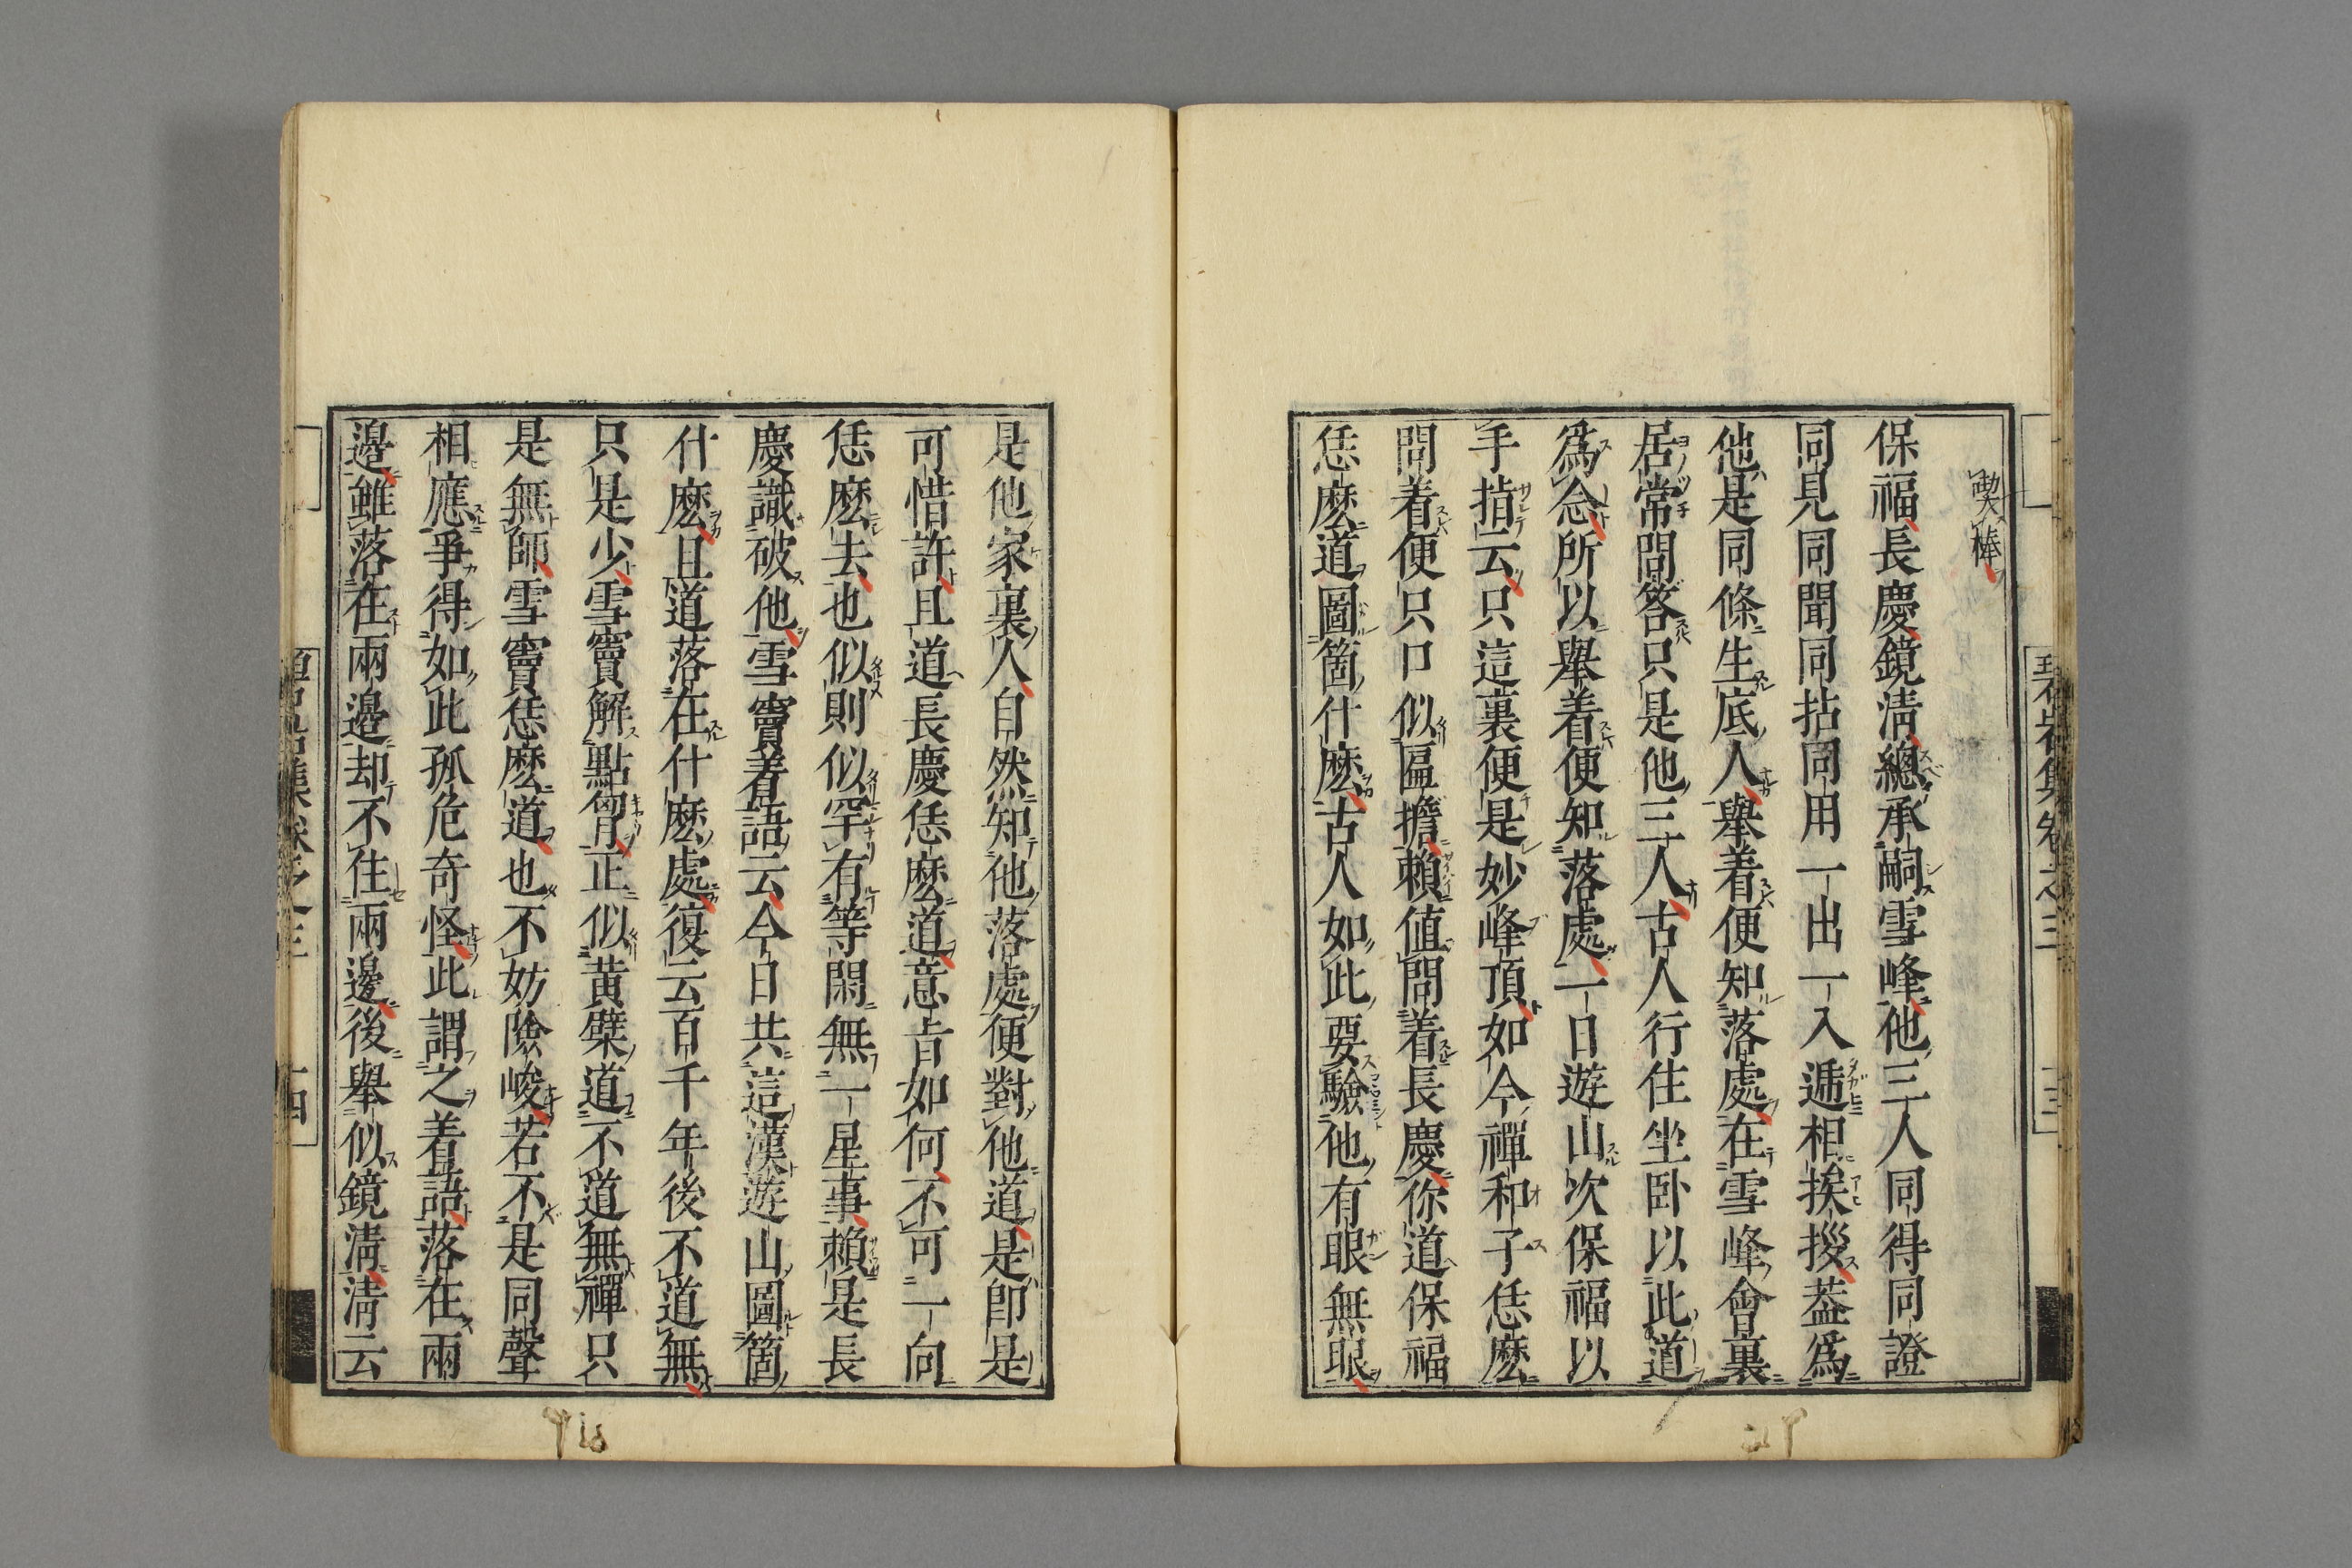 喫棒
保福長慶鏡淸總承嗣雪峰他三人同得同證
同見同聞同拈同用一出一入遞相挨拶蓋爲
他是同條生底人舉着便知落處在雪峰會裏
居常問答只是他三人古人行住坐臥以此道
爲念所以舉着便知落處一日遊山次保福以
手指云只這裏便是妙峰頂如今禪和子恁麽
問着便只口似匾擔賴値問着長慶你道保福
恁麽道圖箇什麽古人如此要驗他有眼無眼
是他家裏人自然知他落處便對他道是卽是
可惜許且道長慶恁麽道意旨如何不可一向
恁麽去也似則似罕有等閑無一星事賴是長
慶識破他雪竇着語云今日共這漢遊山圖箇
什麽且道落在什麽處復云百千年後不道無
只是少雪竇解點胷正似黃檗道不道無禪只
是無師雪竇恁麽道也不妨險峻若不是同聲
相應爭得如此孤危奇怪此謂之着語落在兩
邊雖落在兩邊却不住兩邊後舉似鏡淸淸云